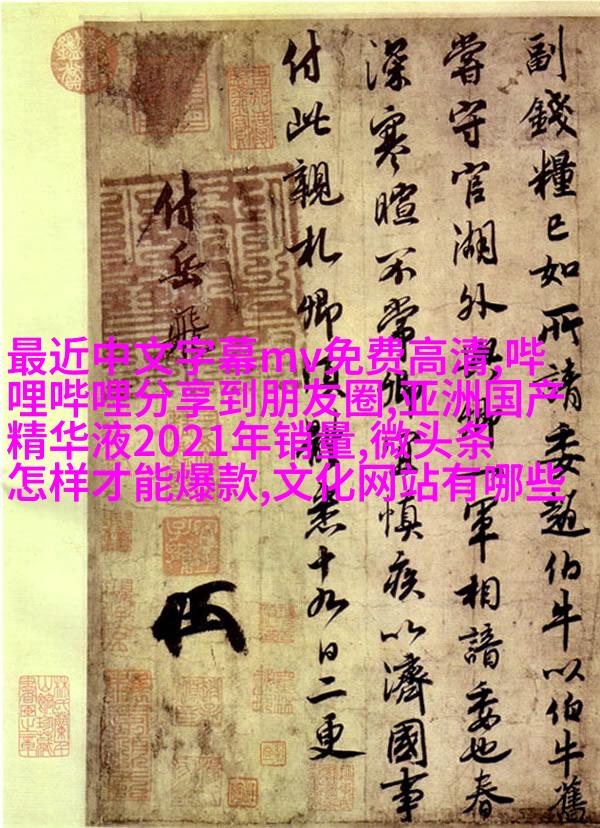 副錢糧已如所請委趙伯牛以伯牛舊
嘗守官湖外卿一軍相諳委也春
深寒暄不常卿宜慎疾以濟國事
付此親札卿須悉十九日二更
付岳飛
最近中文字幕mv免费高清,哔
哩哔哩分享到朋友圈,亚洲国产
精华液2021年销量,微头条
怎样才能爆款,文化网站有哪些